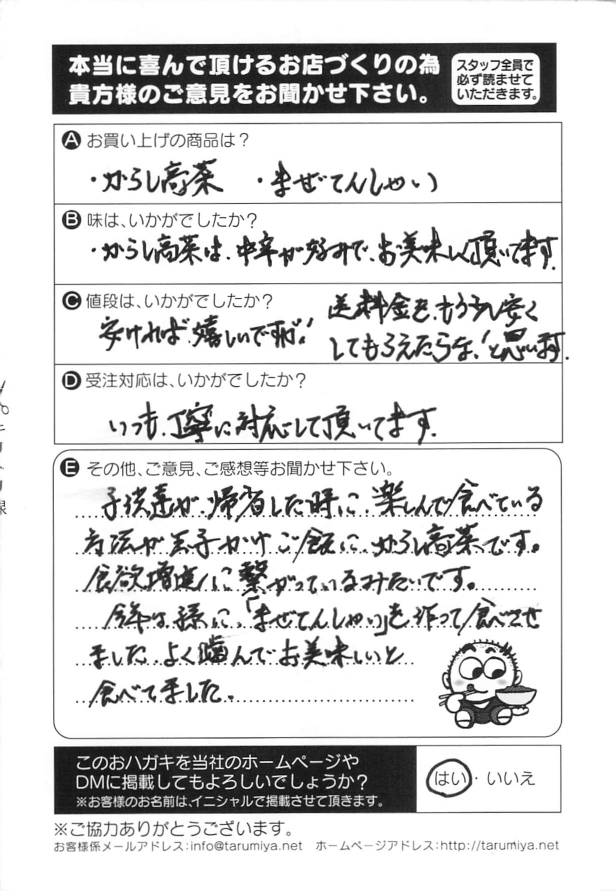 本当に喜んで頂けるお店づくりの為
貴方様のご意見をお聞かせ下さい。
スタッフ全員で
必ず読ませて
いただきます。
A お買い上げの商品は？
・からし高菜 ・まぜてんしゃい
B 味は、いかがでしたか？
・からし高菜は、中辛が好みで、お美味しく頂いてます。
C 値段は、いかがでしたか？
安ければ嬉しいですが！
送料金を、もう少し安く
してもらえたらな、と思います。
D 受注対応は、いかがでしたか？
いつも、丁寧に対応して頂いてます。
E その他、ご意見、ご感想等お聞かせ下さい。
子供達が、帰省した時に、楽しんで食べている
方法が玉子かけご飯に、からし高菜です。
食欲増進に繋がっているみたいです。
今年は孫に、「まぜてんしゃい」を作って食べさせ
ました。よく噛んでお美味しいと
食べてました。
このおハガキを当社のホームページや
DMに掲載してもよろしいでしょうか？
※お客様のお名前は、イニシャルで掲載させて頂きます。
はい・いいえ
※ご協力ありがとうございます。
お客様係メールアドレス：info@tarumiya.net ホームページアドレス：http://tarumiya.net